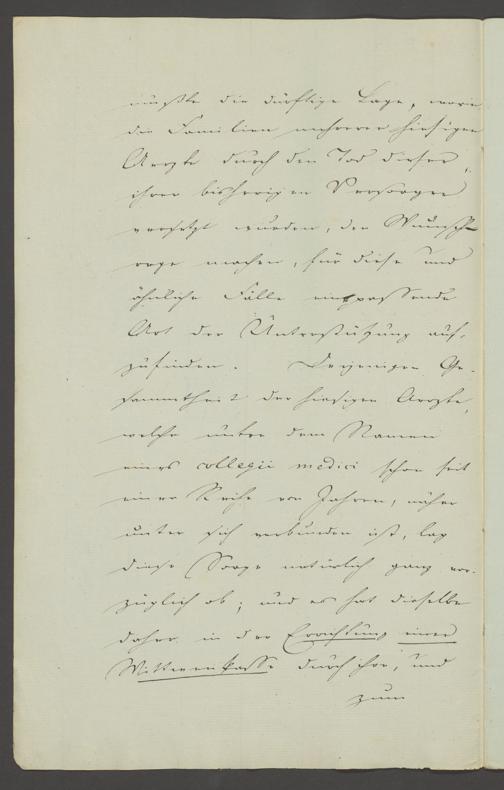 mußte die dürftige Lage, worin
die Familien mehrerer hiesigen
Aerzte durch den Tod dieser,
ihrer bisherigen Versorger
versetzt wurden, den Wunsch
rege machen, für diese und
ähnliche Fälle eine passende
Art der Unterstützung auf-
zufinden. Derjenigen Ge-
sammtheit der hiesigen Aerzte,
welche unter dem Namen
eines collegii medici schon seit
einer Reihe von Jahren, näher
unter sich verbunden ist, lag
diese Sorge natürlich ganz vor-
züglich ob; und es hat dieselbe
daher in der Errichtung einer
Wittwenkasse durch ihre, und
zum